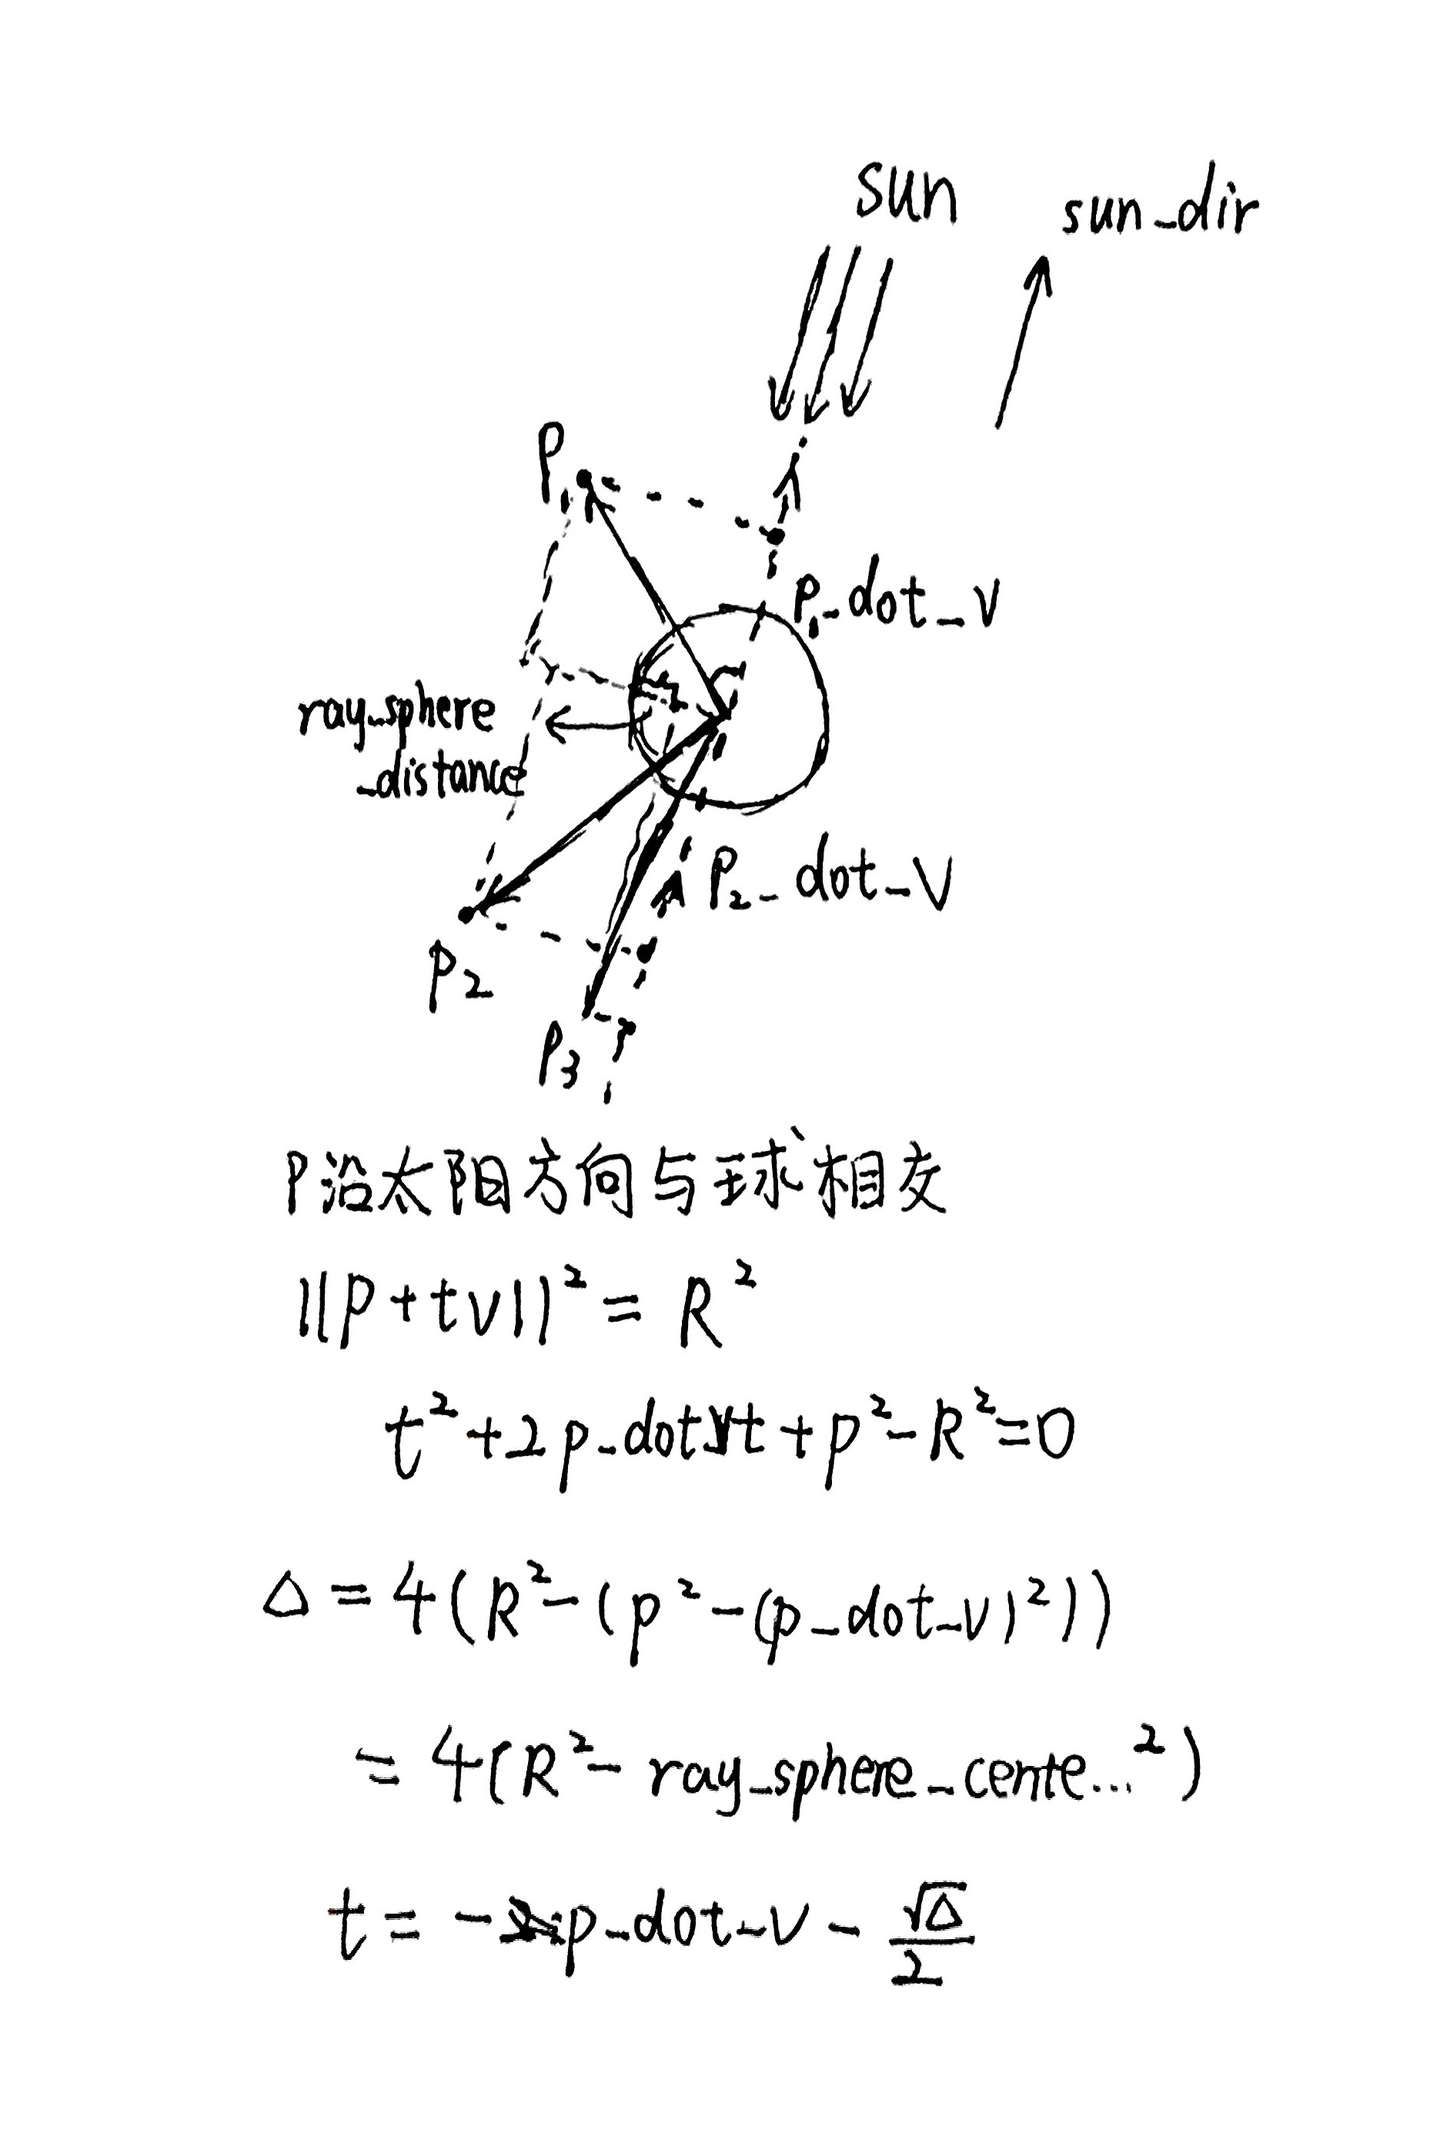 sun
sun_dir
P₁
P₁_dot_v
ray_sphere
_distance
P₂_dot_v
P₂
P₃
P沿太阳方向与球相交
||P+tv||²=R²
t²+2p_dot_vt+p²-R²=0
Δ=4(R²-(p²-(p_dot_v)²))
=4(R²-ray_sphere_cente...²)
t=-p_dot_v-√Δ/2